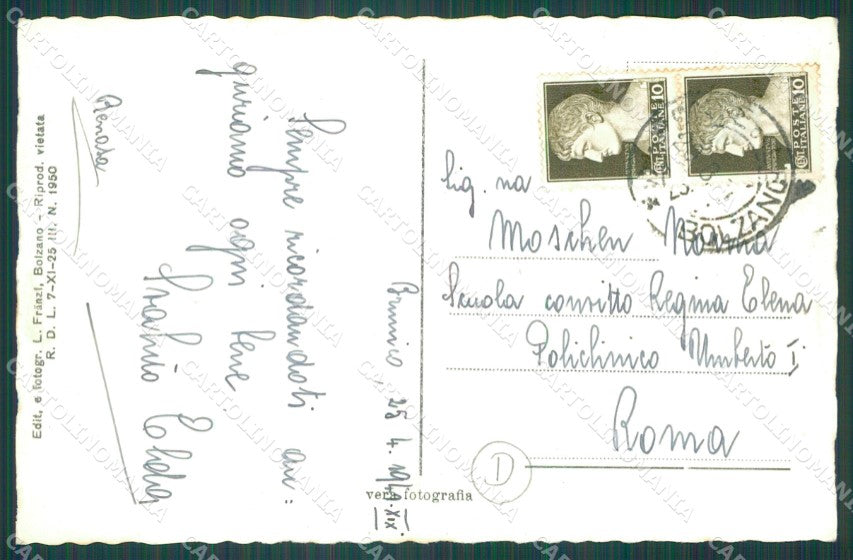 Brunico, 25.4.1941-XIX
Sempre ricordandoti au=
guriamo ogni bene
Renata
Sig.na
Moschen Norma
Scuola convitto Regina Elena
Policlinico Umberto I
Roma
D
POSTE ITALIANE
CENT. 10
POSTE ITALIANE
CENT. 10
BOLZANO
vera fotografia
Edit. e fotogr. L. Fränzl, Bolzano - Riprod. vietata
R. D. L. 7-XI-25 III. N. 1950
CARTOLINOMANIA